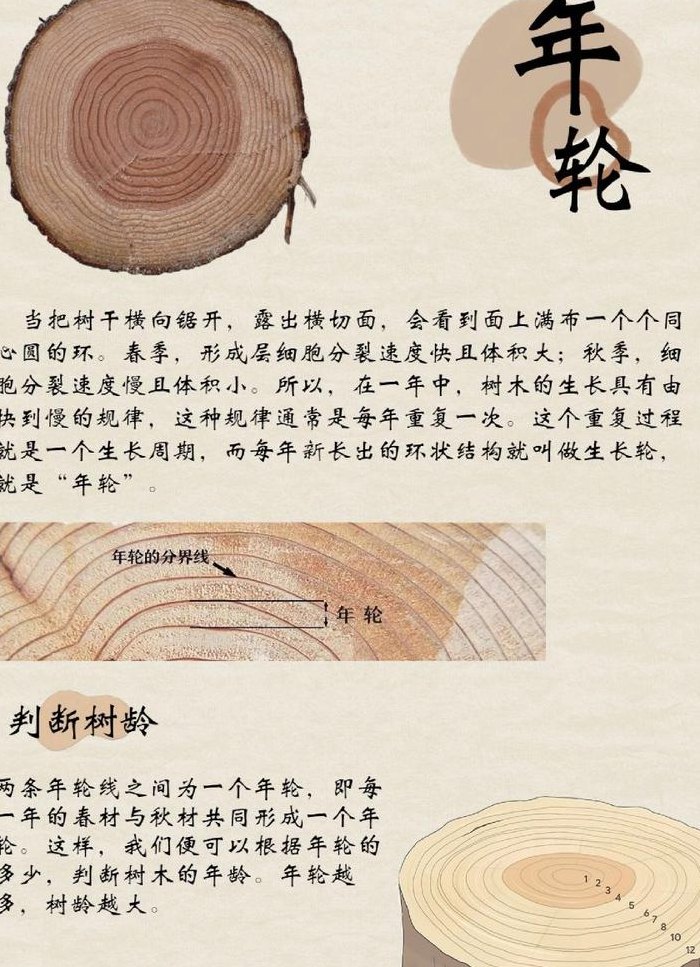 年
轮
当把树干横向锯开，露出横切面，会看到面上满布一个个同
心圆的环。春季，形成层细胞分裂速度快且体积大；秋季，细
胞分裂速度慢且体积小。所以，在一年中，树木的生长具有由
快到慢的规律，这种规律通常是每年重复一次。这个重复过程
就是一个生长周期，而每年新长出的环状结构就叫做生长轮，
就是“年轮”。
年轮的分界线
年 轮
判断树龄
两条年轮线之间为一个年轮，即每
一年的春材与秋材共同形成一个年
轮。这样，我们便可以根据年轮的
多少，判断树木的年龄。年轮越
多，树龄越大。
1 2 3 4 5 6 7 8 10 12